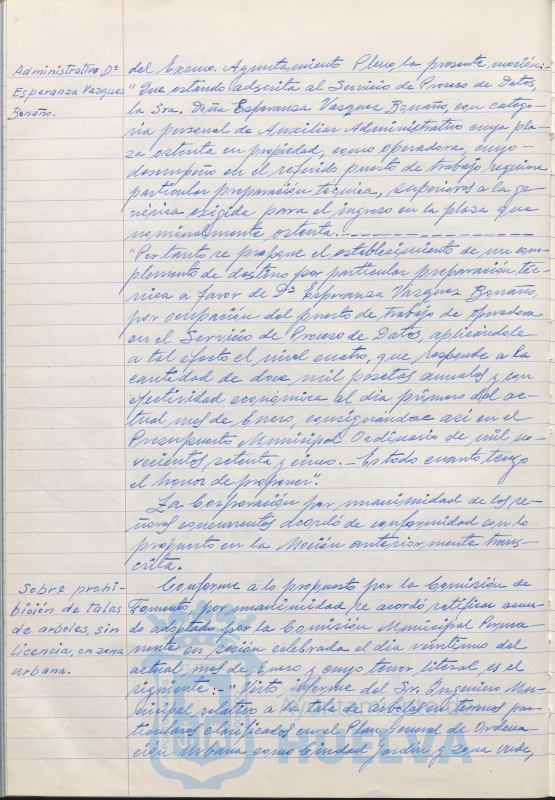 Administrativo Dª
Esperanza Vazquez
Bonaño.
del Excmo. Ayuntamiento Pleno, la presente moción:-
"Que estando adscrita al Servicio de Proceso de Datos,
la Sra. Doña Esperanza Vazquez Bonaño, con catego-
ria personal de Auxiliar Administrativo cuya pla-
za ostenta en propiedad, como operadora, cuyo
desempeño en el referido puesto de trabajo requiere
particular preparación técnica, superiores a la ge-
nérica exigida para el ingreso en la plaza que
nominalmente ostenta.-
"Por tanto se propone el establecimiento de un com-
plemento de destino por particular preparación téc-
nica a favor de Dª Esperanza Vazquez Bonaño,
por ocupación del puesto de trabajo de Operadora
en el Servicio de Proceso de Datos, aplicándole
a tal efecto el nivel cuatro, que responde a la
cantidad de doce mil pesetas anuales y con
efectividad económica al dia primero del ac-
tual mes de Enero, consignándose asi en el
Presupuesto Municipal Ordinario de mil no-
vecientos setenta y cinco.- Es todo cuanto tengo
el honor de proponer".
La Corporación por unanimidad de los se-
ñores concurrentes acordó de conformidad con lo
propuesto en la Moción anteriormente trans-
crita.
Sobre prohi-
bición de talas
de arboles, sin
licencia, en zona
urbana.
Conforme a lo propuesto por la Comisión de
Fomento, por unanimidad, se acordó ratificar acuer-
do adoptado por la Comisión Municipal Perma-
nente en sesión celebrada el dia veintiuno del
actual mes de Enero y cuyo tenor literal es el
siguiente:-"Visto, informe del Sr. Ingeniero Mu-
nicipal relativo a la tala de arboles en terrenos par-
ticulares clasificados en el Plan General de Ordena-
ción Urbana como Ciudad Jardin y zona verde,
HUELVA